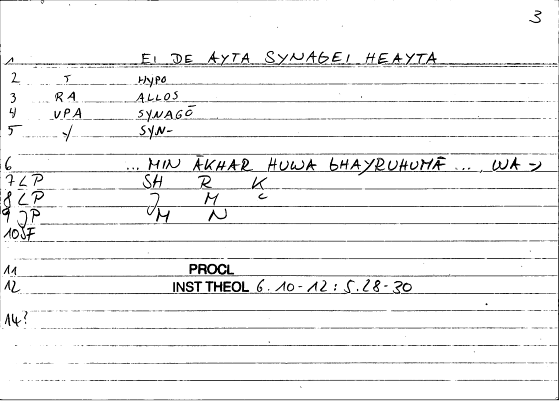 3
1 EI DE AYTA SYNAGEI HEAYTA
2 T HYPO
3 RA ALLOS
4 VPA SYNAGŌ
5 Y SYN-
6 ... MIN ĀKHAR HUWA GHAYRUHUMĀ ..., WA →
7 LP SH R K
8 LP J M C
9 JP M N
10 SF
11 PROCL
12 INST THEOL 6.10-12 : 5.28-30
14?